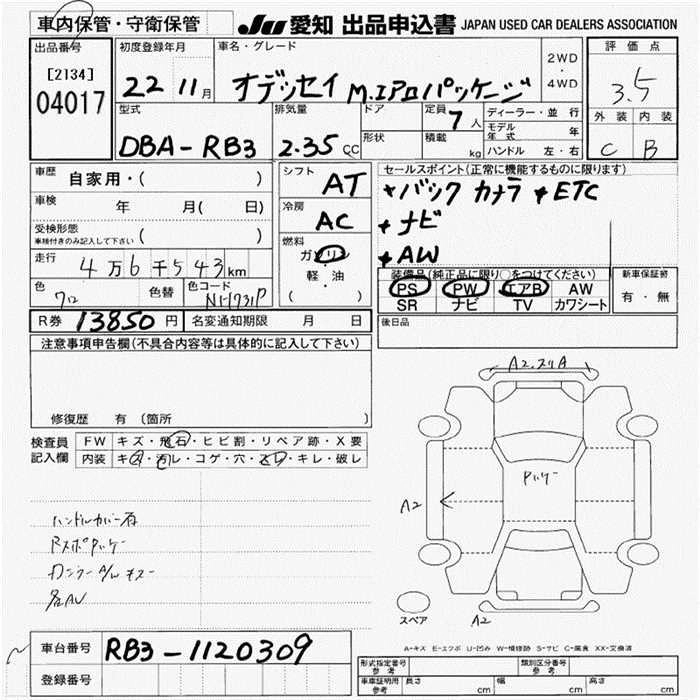 車内保管・守衛保管 JU 愛知 出品申込書 JAPAN USED CAR DEALERS ASSOCIATION
出品番号
[2134]
04017
初度登録年月
22 11月
車名・グレード
オデッセイ M.エアロパッケージ
2WD
・
4WD
評価点
3.5
外装 内装
C B
型式
DBA-RB3
排気量
2.35 CC
ドア
形状
定員
7人
積載
kg
ディーラー・並行
モデル年式 年
ハンドル 左・右
車歴 自家用・( )
車検 年 月( 日)
受検形態
車検付きのみ記入して下さい ( )
走行 4万6千543km
色
色替
色コード
シフト
AT
冷房
AC
燃料
ガソリン
軽・油
( )
セールスポイント(正常に機能するものに限ります)
+バック カメラ +ETC
+ナビ
+AW
装備品(純正品に限り○をつけてください)
PS PW エアB AW
SR ナビ TV カワシート
新車保証書
有・無
R券 13850円 名変通知期限 月 日
後日品
注意事項申告欄(不具合内容等は具体的に記入して下さい)
修復歴 有 (箇所 )
検査員
記入欄
FW キズ・飛石・ヒビ割・リペア跡・X要
内装 キズ・汚レ・コゲ・穴・スレ・キレ・破レ
ハンドルカバー有
各AU
A2.スリA
A2
A2
スペア
A-キズ E-エクボ U-凹み W-補修跡 S-サビ C-腐食 XX-交換済
車台番号 RB3-1120309
登録番号
形式指定番号
参考
類別区分番号
参考
車庫証明用
参考
長さ cm 幅 cm 高さ cm